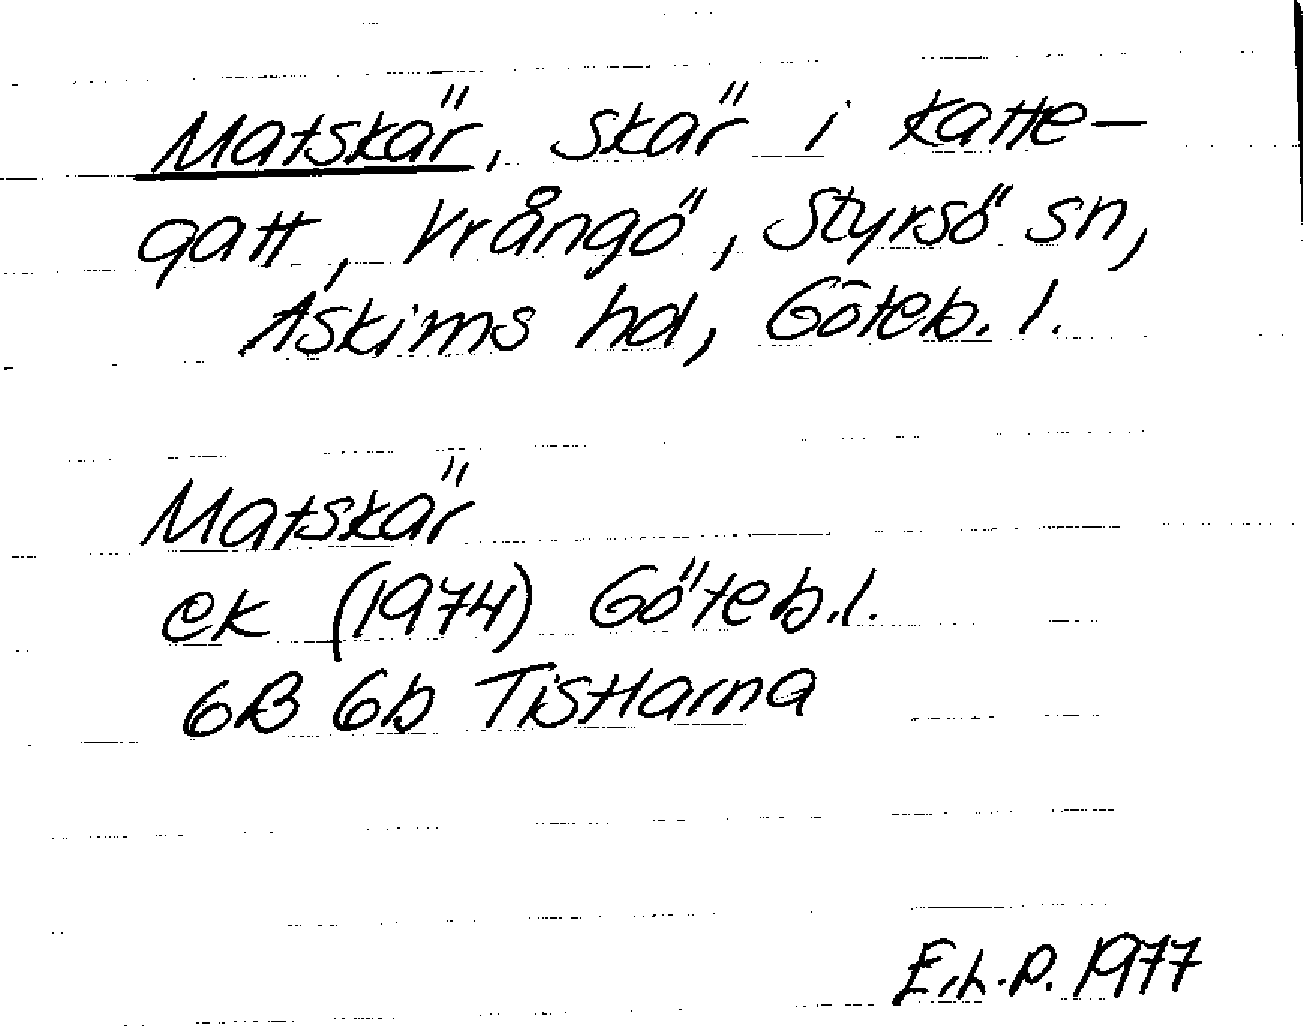 Matskär, skär i Katte-
gatt, Vrångö, Styrsö sn,
Askims hd, Göteb. l.
Matskär
ek (1974) Göteb.l.
6B 6b Tistlarna
E.L.P. 1977